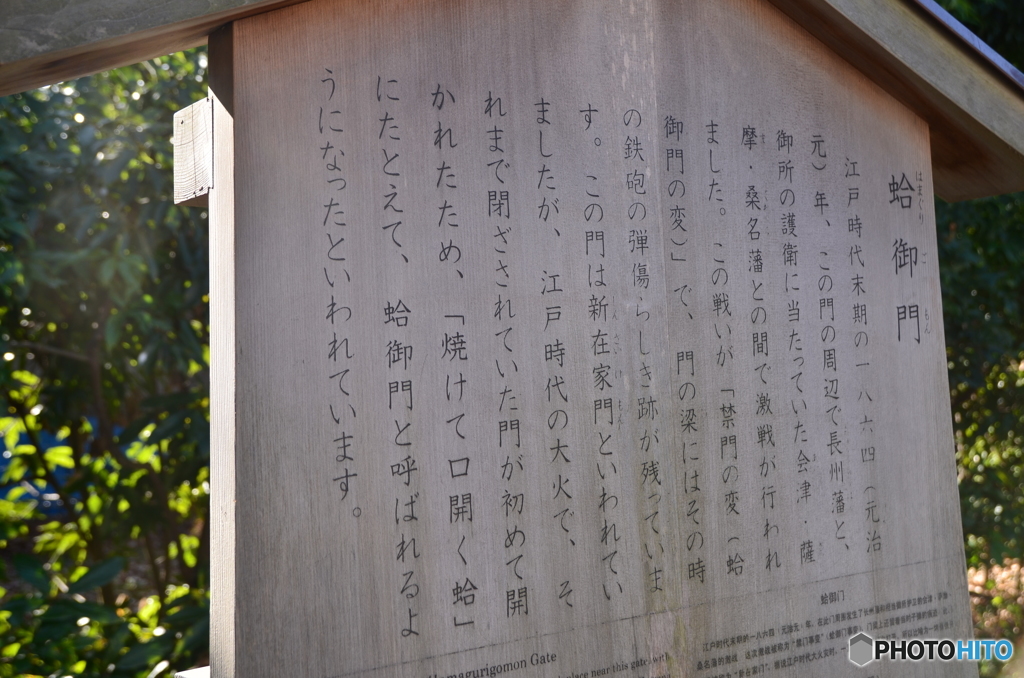 蛤御門
はまぐりごもん
江戸時代末期の一八六四（元治
元）年、この門の周辺で長州藩と、
御所の護衛に当たっていた会津・薩
摩・桑名藩との間で激戦が行われ
ました。この戦いが「禁門の変（蛤
御門の変）」で、門の梁にはその時
の鉄砲の弾傷らしき跡が残っていま
す。この門は新在家門といわれてい
ましたが、江戸時代の大火で、そ
れまで閉ざされていた門が初めて開
かれたため、「焼けて口開く蛤」
にたとえて、蛤御門と呼ばれるよ
うになったといわれています。
magurigomon Gate
place near this gate with
蛤御门
PHOTOHITO